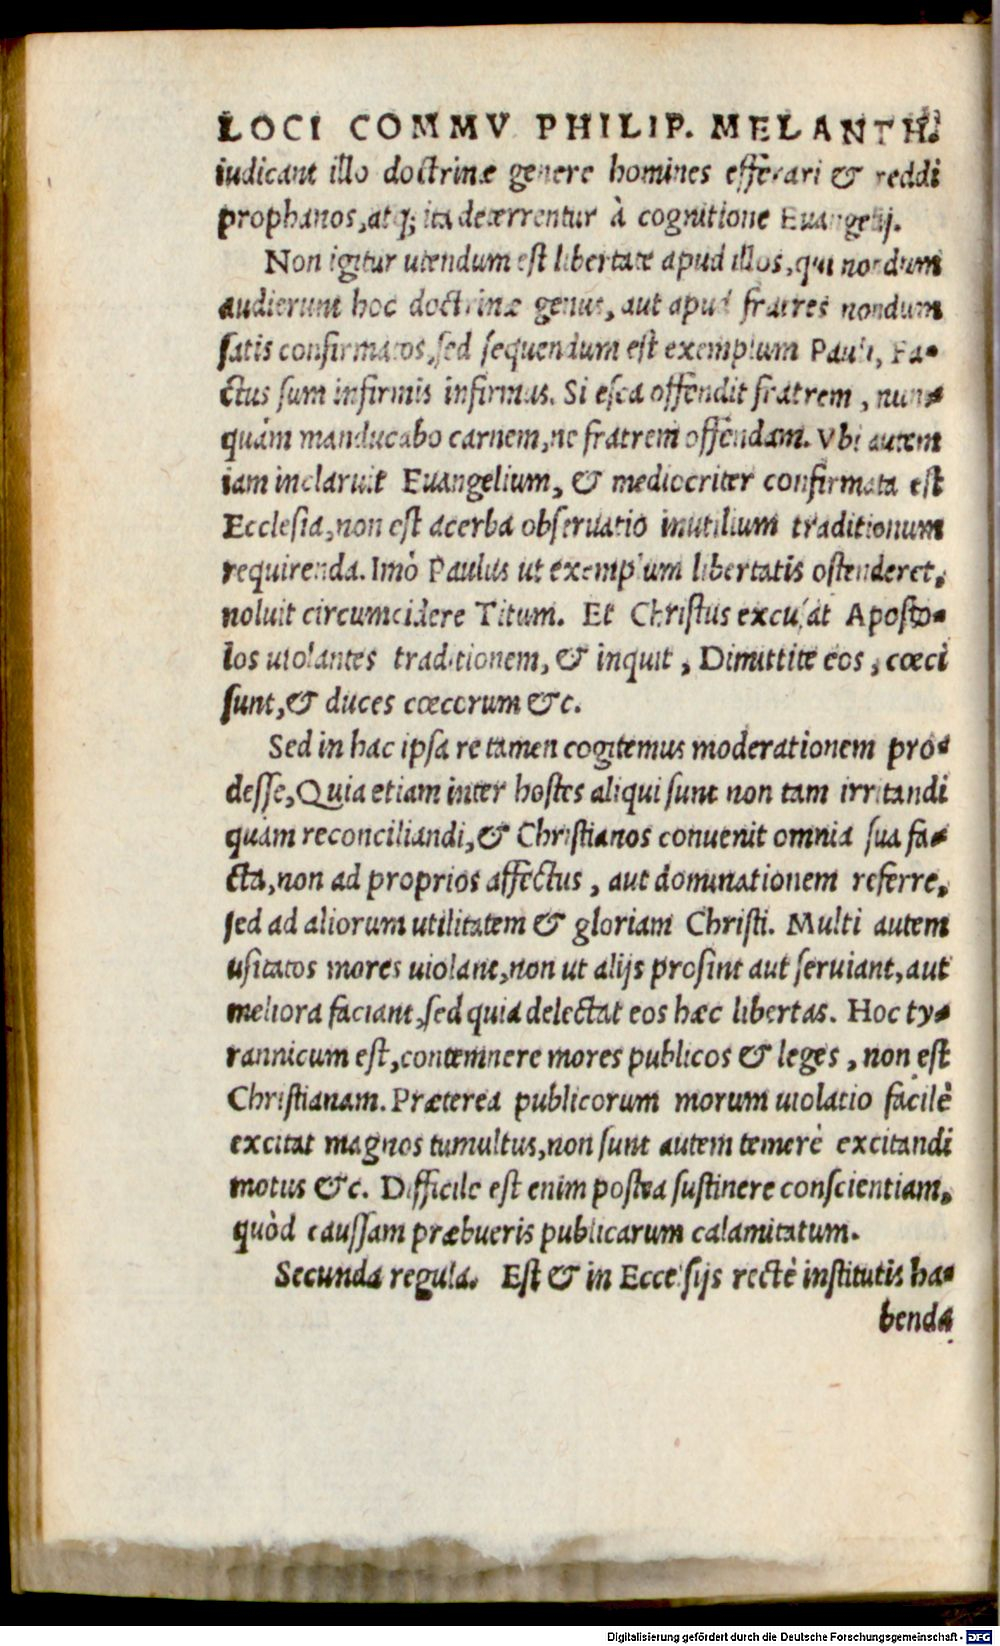 LOCI COMMV PHILIP. MELANTH.
iudicant illo doctrinæ genere homines efferari & reddi
prophanos, atq; ita deterrentur à cognitione Euangelij.
Non igitur utendum est libertate apud illos, qui nondum
audierunt hoc doctrinæ genus, aut apud fratres nondum
satis confirmatos, sed sequendum est exemplum Pauli, Fa-
ctus sum infirmis infirmus. Si esca offendit fratrem, nun-
quàm manducabo carnem, ne fratrem offendam. Vbi autem
iam inclaruit Euangelium, & mediocriter confirmata est
Ecclesia, non est acerba obseruatio inutilium traditionum
requirenda. Imò Paulus ut exemplum libertatis ostenderet,
noluit circumcidere Titum. Et Christus excusat Aposto-
los uiolantes traditionem, & inquit, Dimittite eos, cœci
sunt, & duces cœcorum &c.
Sed in hac ipsa re tamen cogitemus moderationem pro-
desse, Quia etiam inter hostes aliqui sunt non tam irritandi
quàm reconciliandi, & Christianos conuenit omnia sua fa-
cta, non ad proprios affectus, aut dominationem referre,
sed ad aliorum utilitatem & gloriam Christi. Multi autem
usitatos mores uiolant, non ut alijs prosint aut seruiant, aut
meliora faciant, sed quia delectat eos hæc libertas. Hoc ty-
rannicum est, contemnere mores publicos & leges, non est
Christianam. Præterea publicorum morum uiolatio facilè
excitat magnos tumultus, non sunt autem temerè excitandi
motus &c. Difficile est enim postea sustinere conscientiam,
quòd caussam præbueris publicarum calamitatum.
Secunda regula. Est & in Ecclesijs rectè institutis ha-
benda
Digitalisierung gefördert durch die Deutsche Forschungsgemeinschaft - DFG